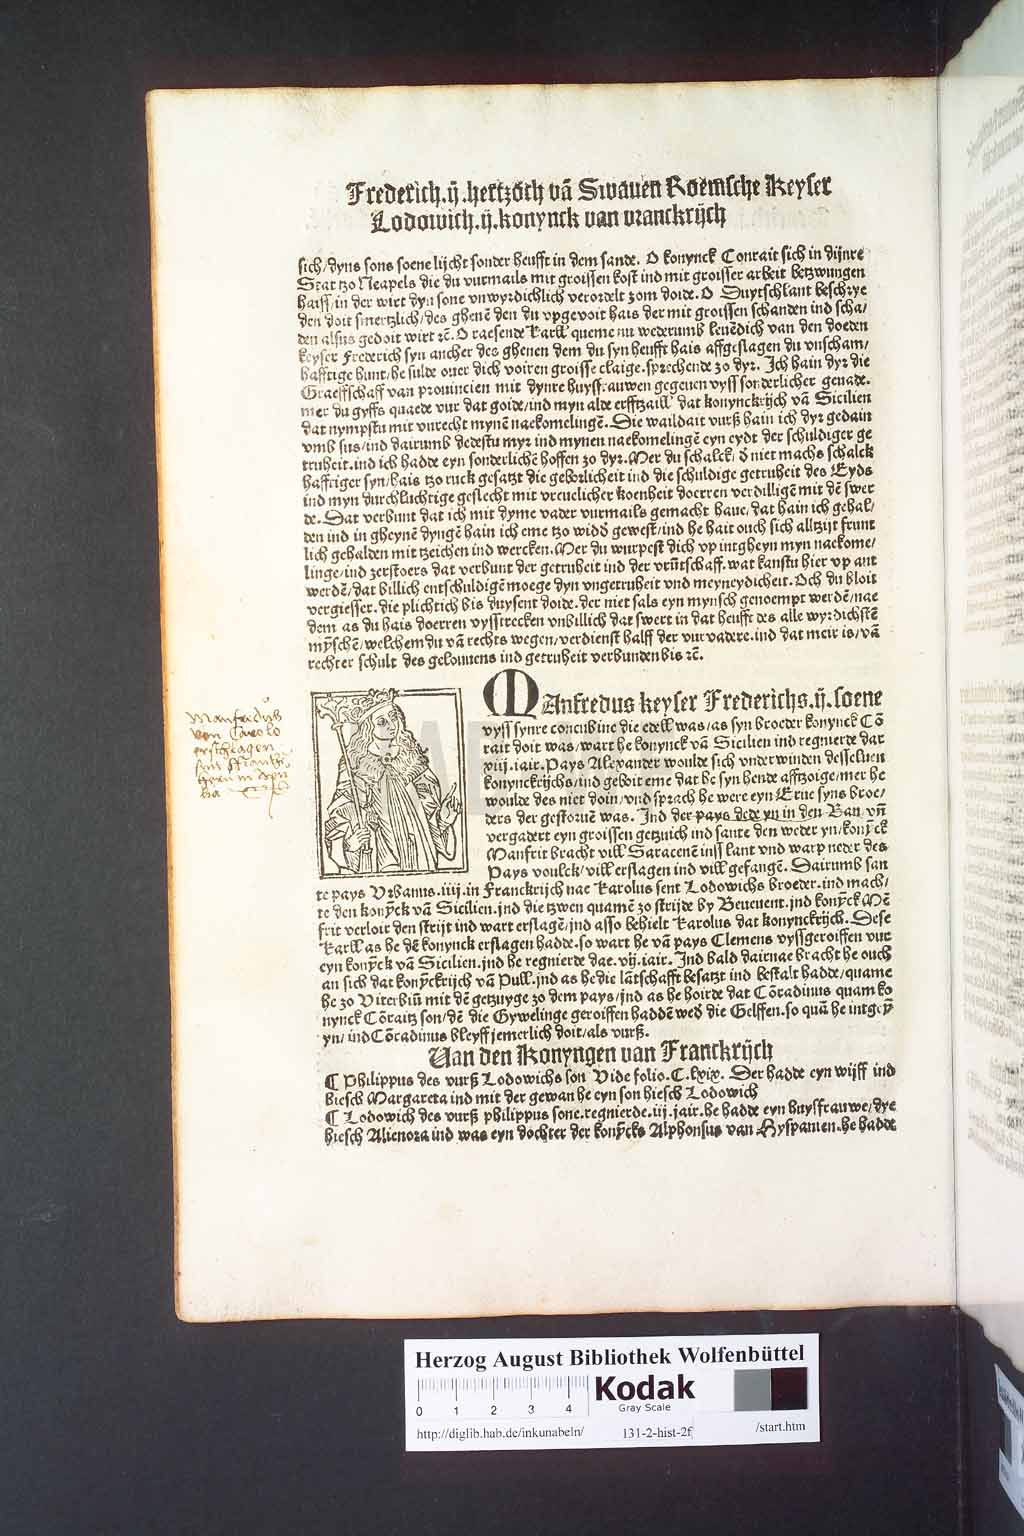 Frederich.ij.hertzoch vā Swauen Roemsche Keyser
Lodowich.ij.konynck van vranckrijch
sich/dyns sons soene lijcht sonder heufft in dem sande. O konynck Conrait sich in dijnre
Stat tzo Neapels die du vurmails mit groissen kost ind mit groisser arbeit betzwungen
haiss/in der wirt dyn sone vnwyrdichlich verordelt zom doide. O Duytschlant beschrye
den doit smertzlich/des ghenē den du vpgevoit hais der mit groissen schanden ind scha/
den alsus gedoit wirt ꝛc̄. O raesende Karll queme nu wederumb leuēdich van den doeden
keyser Frederich syn ancher des ghenen dem du syn heufft hais affgeslagen du vnscham/
hafftige hunt/he sulde ouer dich voiren groisse claige.sprechende zo dyr. Ich hain dyr die
Graeffschaff van prouincien mit dynre huysfrauwen gegeuen vyss sonderlicher genade.
mer du gyffs quaede vur dat goide/ind myn alde erfftzaill dat konynckrijch vā Sicilien
dat nympstu mit vnrecht mynē naekomelingē. Die waildait vurß hain ich dyr gedain
vmb sus/ind dairumb dedestu myr ind mynen naekomelingē eyn eydt der schuldiger ge
truheit.ind ich hadde eyn sonderlichē hoffen zo dyr. Mer du schalck/ď niet machs schalck
hafftiger syn/hais tzo ruck gesatzt die geborlicheit ind die schuldige getruheit des Eyds
ind myn durchluchtige geslecht mit vreuelicher koenheit doerren verdilligē mit dē swer
de. Dat verbunt dat ich mit dyme vader vurmails gemacht haue/dat hain ich gehal/
den ind in gheynē dyngē hain ich eme tzo widď gewest/ind he hait ouch sich alltzijt frunt
lich gehalden mit tzeichen ind wercken. Mer du wurpest dich vp intgheyn myn naekome/
linge/ind zerstoers dat verbunt der getruheit ind der vrūtschaff. wat kanstu hier vp ant
werdē/dat billich entschuldigē moege dyn vngetruheit vnd meyneydicheit. Och du bloit
vergiesser. die plichtich bis duysent doide.der niet sals eyn mynsch genoempt werdē/nae
dem as du hais doerren vysstrecken vnbillich dat swert in dat heufft des alle wyrdichstē
mȳschē/welchem du vā rechts wegen/verdienst halff der vurvadere.ind dat meir is/vā
rechter schult des gelouuens ind getruheit verbunden bis ꝛc̄.
Manfredus keyser Frederichs.ij.soene
vyss synre concubine die edell was/as syn broeder konynck Cō
rait doit was/wart he konynck vā Sicilien ind regnierde dar
xiij.iair. Pays Alexander woulde sich vnderwinden desseluen
konynckrijchs/ind geboit eme dat he syn hende afftzoige/mer he
woulde des niet doin/vnd sprach he were eyn Erue syns broe/
ders der gestoruē was. Ind der pays dede yn in den Ban vn̄
vergadert eyn groissen getzuich ind sante den weder yn/konȳck
Manfrit bracht vill Saracenē inss lant vnd warp neder des
Pays voulck/vill erslagen ind vill gefangē. Dairumb san
te pays Vrbanus.iiij.in Franckrijch nae Karolus sent Lodowichs broeder.ind mach/
te den konȳck vā Sicilien.jnd die tzwen quamē zo strijde by Beueuent.jnd konȳck Mē
frit verloir den strijt ind wart erslagē/jnd asso behielt Karolus dat konynckrijch. Dese
Karll as he dē konynck erslagen hadde.so wart he vā pays Clemens vyssgeroiffen vur
eyn konȳck vā Sicilien.jnd he regnierde dae.vij.iair. Ind bald dairnae bracht he ouch
an sich dat konȳckrijch vā Pull.jnd as he die lātschafft besatzt ind bestalt hadde/quame
he zo Viterbiū mit dē getzuyge zo dem pays/jnd as he hoirde dat Cōradinus quam ko
nynck Cōraitz son/dē die Gywelinge geroiffen haddē weď die Gelffen.so quā he intgeȳ
yn/ind Cōradinus bleyff jemerlich doit/als vurß.
Van den Konyngen van Franckrijch
¶ Philippus des vurß Lodowichs son Vide folio.C.lxix. Der hadde eyn wijff ind
hiesch Margareta ind mit der gewan he eyn son hiesch Lodowich
¶ Lodowich des vurß philippus sone.regnierde.iij.jair.he hadde eyn huysfrauwe/dye
hiesch Alienora ind was eyn dochter der konȳcks Alphonsus van Hyspanien.he hadde
Manfredus
von Carolo
erschlagen
Herzog August Bibliothek Wolfenbüttel
0 1 2 3 4
Kodak
Gray Scale
http://diglib.hab.de/inkunabeln/ 131-2-hist-2f /start.htm